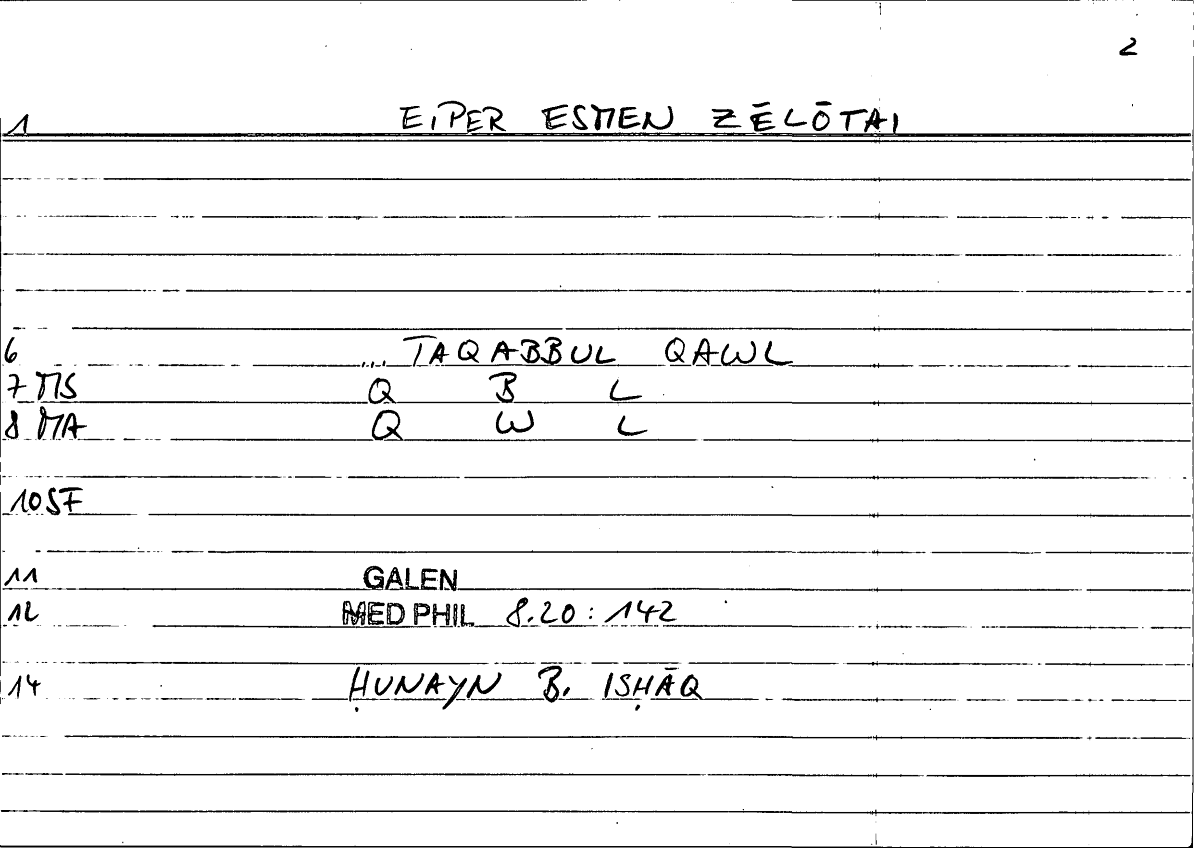 2
1 EIPER ESMEN ZĒLŌTAI
6 ... TAQABBUL QAWL
7 MS Q B L
8 MA Q W L
10 SF
11 GALEN
12 MED PHIL 8.20 : 142
14 ḤUNAYN B. ISḤĀQ